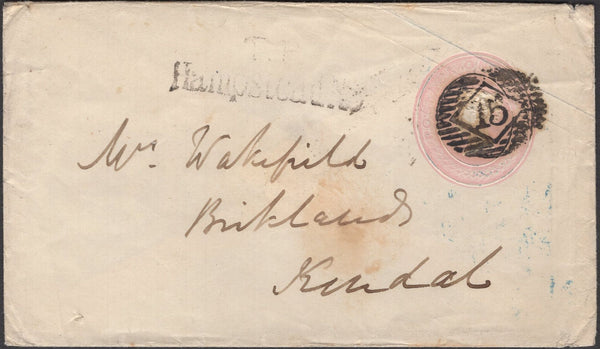 T.P
Hampstead
15
Mrs. Wakefield
Birklands
Kendal